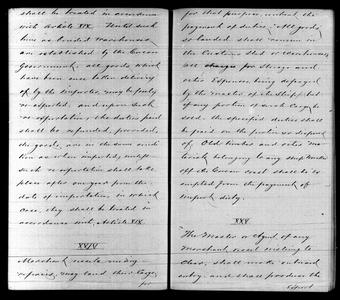 shall be treated in accordance
with Article XIX. Until such
time as bonded Warehouses
are established by the Corean
Government, all goods which
have been once taken delivery
of by the importer, may be freely
re-exported, and upon such
re-exportation, the duties paid
shall be refunded, provided,
the goods, are in the same condi-
tion as when imported; unless
such re-exportation shall take
place after one year from the
date of importation, in which
case, they shall be treated in
accordance with Article XIX
XXIV
Merchant vessels needing
repairs, may land their cargo,
for
for that purpose, without the
payment of duties. All goods
so landed shall
the Customs shed or warehouse,
all charges for storage and
other expenses being defrayed
by the master of the ship; but
if any portion of such Cargo be
sold, the specified duties shall
be paid on the portion so disposed
of. Old timber and other ma-
terials belonging to any ship
off the Corean coast shall be ex-
empted from the payment of
import duty.
XXV
The Master or Agent of any
Merchant vessel wishing to
clear, shall make outward
entry, and shall produce the
Export